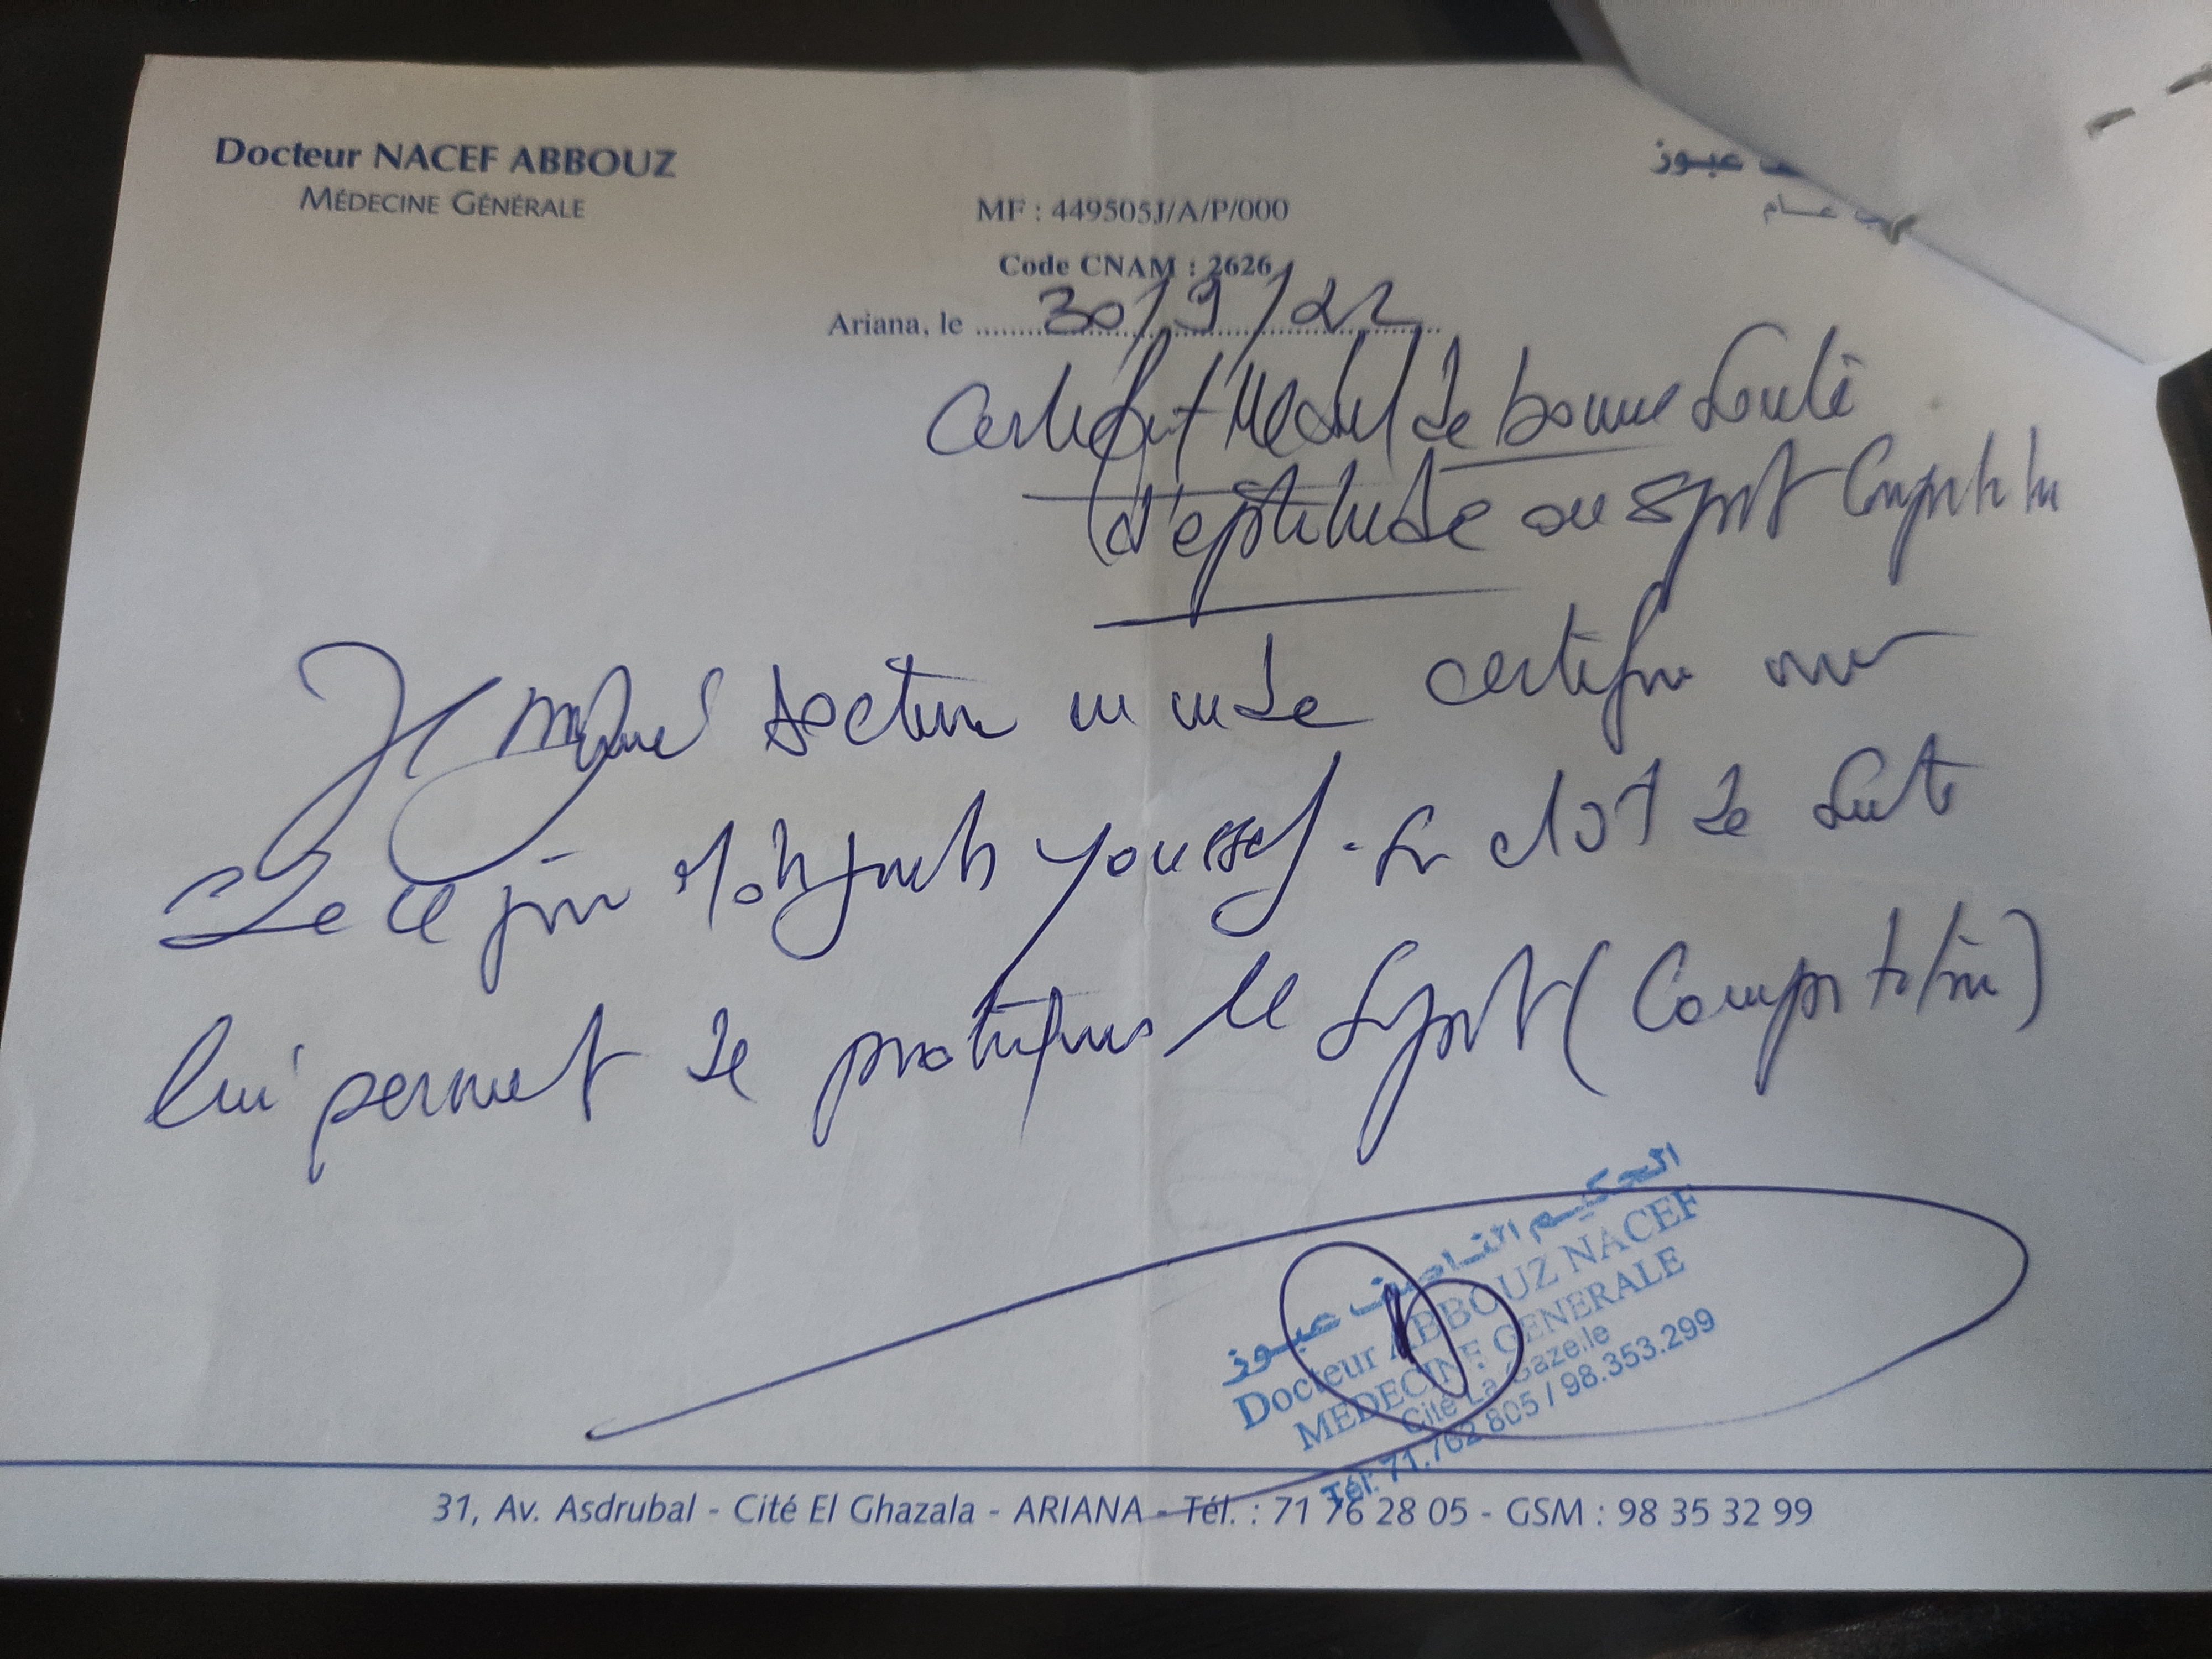 Docteur NACEF ABBOUZ
MÉDECINE GÉNÉRALE
عبوز
عام
MF : 449505J/A/P/000
Code CNAM : 2626
Ariana, le 30/9/22
Certificat Médical de bonne Santé
d'aptitude au Sport
Je soussigné docteur en médecine certifie avoir
de ce jour Youssef. Son état de santé
lui permet de pratiquer le Sport (Compétition)
الحكيم الناصف عبوز
Docteur ABBOUZ NACEF
MEDECINE GENERALE
Cité La Gazelle
Tél: 71.762.805 / 98.353.299
31, Av. Asdrubal - Cité El Ghazala - ARIANA - Tél. : 71 76 28 05 - GSM : 98 35 32 99